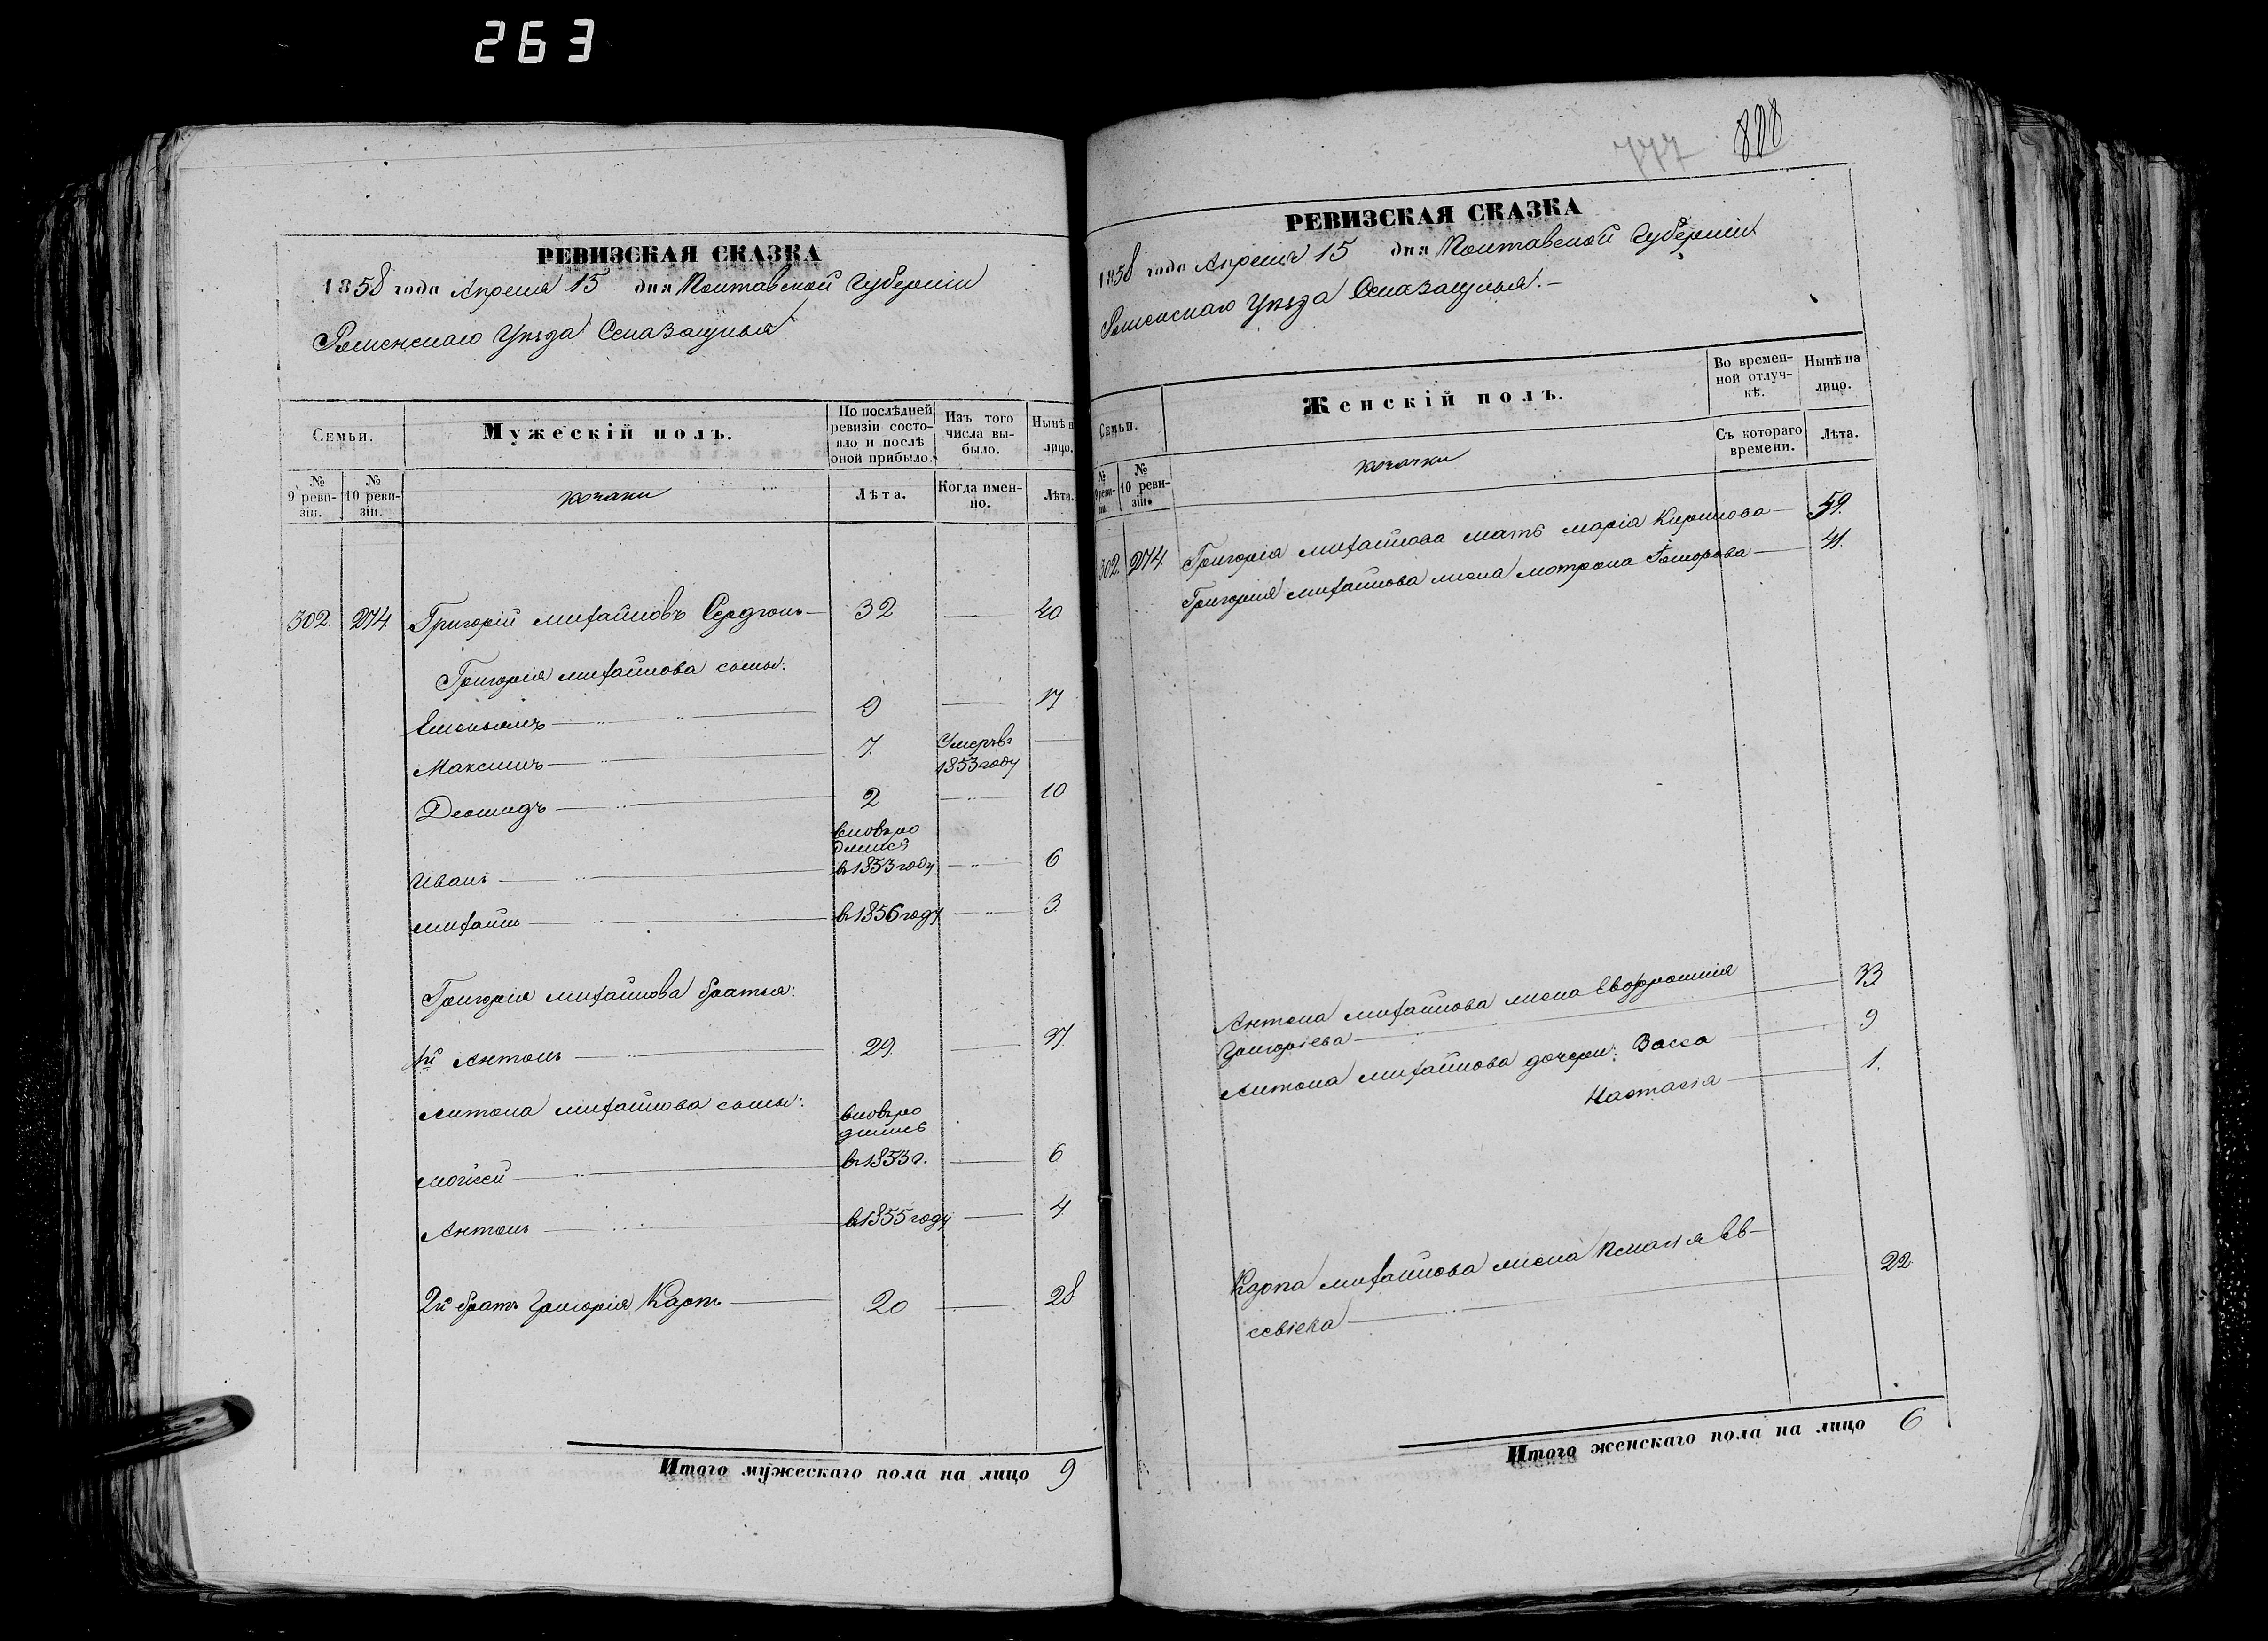 263
РЕВИЗСКАЯ СКАЗКА
1858 года Апреля 15 дня Полтавской Губерніи
Роменскаго Уѣзда Села Загунья
Семьи.
Мужескій полъ.
По послѣдней ревизіи состояло и послѣ оной прибыло.
Изъ того числа выбыло.
Нынѣ н лицо.
№ 9 ревизіи.
№ 10 ревизіи.
козаки
Лѣта.
Когда именно.
Лѣта.
302. 274. Григорій михайловъ 32 — 40
Григорія михайлова сыны:
Емельянъ — 9 — 17
Максимъ — 7. Умеръ в 1853 году —
Деомидъ — 2 — 10
вновь родились
Иванъ — в 1853 году — 6
михаилъ — в 1856 году — 3.
Григорія михайлова братья:
1й Антонъ — 29. — 37.
Антона михайлова сыны:
вновь родились
моісей — в 1853 г. — 6
Антонъ — в 1855 году — 4.
2й братъ Григорія Карпъ — 20 — 28
Итого мужескаго пола на лицо 9
777 828
РЕВИЗСКАЯ СКАЗКА
1858 года Апреля 15 дня Полтавской Губерніи
Роменскаго Уѣзда Села Загунья. —
Семьи.
Женскій полъ.
Во временной отлучкѣ.
Нынѣ на лицо.
№ 9 ревизіи.
№ 10 ревизіи.
козачки
Съ котораго времени.
Лѣта.
302. 274. Григорія михайлова мать марія Кирилова — 59.
Григорія михайлова жена мотрона — 41.
Антона михайлова жена Евфросинія
Григоріева — 33
Антона михайлова дочери: Васса — 9
Настасія — 1.
Карпа михайлова жена Ев-
сѣвіева — 22.
Итого женскаго пола на лицо 6